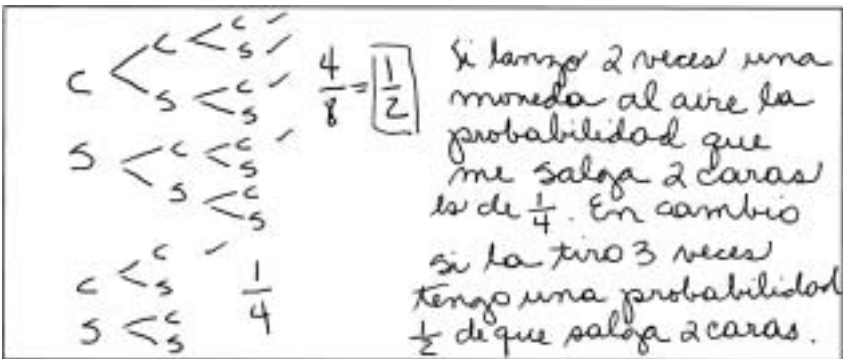 C < C < C ✓
S ✓
S < C ✓
S
S < C < C ✓
S
S < C
S
4/8 = 1/2
C < C ✓
S
S < C
S
1/4
Si lanzo 2 veces una
moneda al aire la
probabilidad que
me salga 2 caras
es de 1/4. En cambio
si la tiro 3 veces
tengo una probabilidad
1/2 de que salga 2 caras.